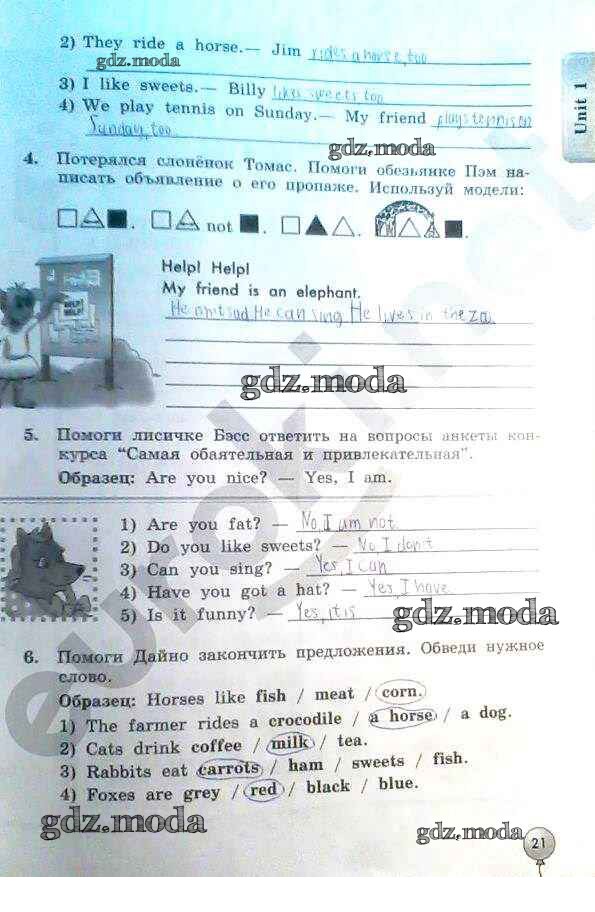 2) They ride a horse.— Jim rides a horse, too
gdz.moda
3) I like sweets.— Billy likes sweets too
4) We play tennis on Sunday.— My friend plays tennis on
Sunday, too
gdz.moda
Unit 1
4. Потерялся слонёнок Томас. Помоги обезьянке Пэм на-
писать объявление о его пропаже. Используй модели:
. not . . .
Help! Help!
My friend is an elephant.
He can sing He lives in the
HELP!
HELP!
gdz.moda
5. Помоги лисичке Бэсс ответить на вопросы анкеты кон-
курса “Самая обаятельная и привлекательная”.
Образец: Are you nice? — Yes, I am.
1) Are you fat? — No, I am not
2) Do you like sweets? — No I don't
3) Can you sing? — Yes, I can
4) Have you got a hat? — Yes, I have
5) Is it funny? — Yes, it is
gdz.moda
6. Помоги Дайно закончить предложения. Обведи нужное
слово.
Образец: Horses like fish / meat / corn.
1) The farmer rides a crocodile / a horse / a dog.
2) Cats drink coffee / milk / tea.
3) Rabbits eat carrots / ham / sweets / fish.
4) Foxes are grey / red / black / blue.
gdz.moda
gdz.moda
21
euroki.net